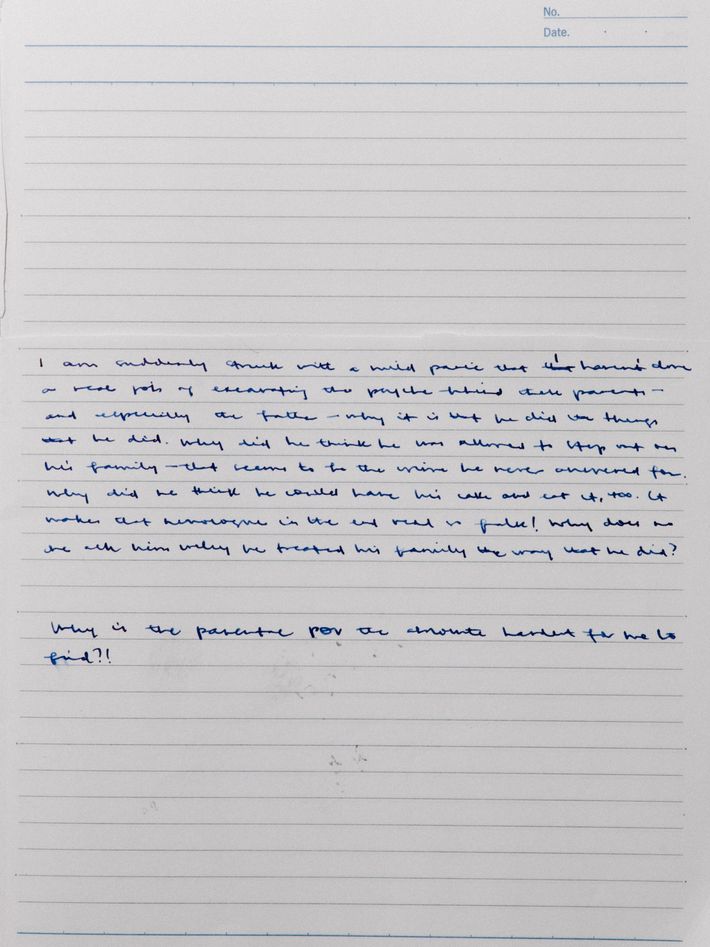 No.
Date.
I am suddenly struck with a mild panic that I haven't done
a real job of excavating the psyche behind these parents –
and especially the father – why it is that he did the things
that he did. Why did he think he was allowed to step out on
his family – that seems to be the crime he never answered for.
Why did he think he could have his cake and eat it, too. It
makes that monologue in the end read so fake! Why does no
one ask him why he treated his family the way that he did?
Why is the parental POV the absolute hardest for me to
find?!